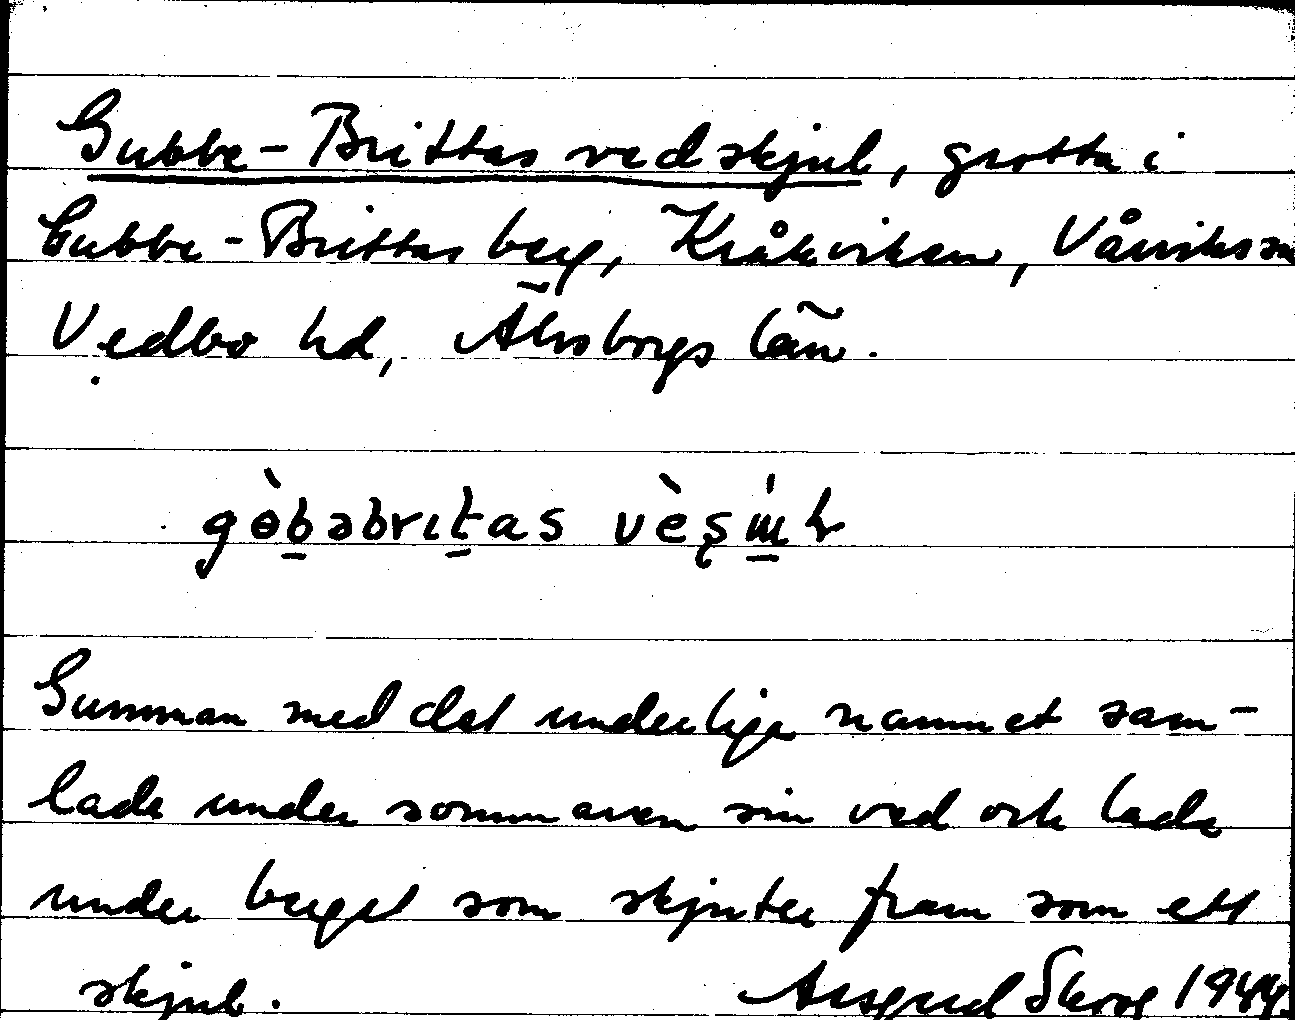 Gubbe-Brittas vedskjul, grotta i
Gubbe-Brittas berg, Kråkviken, Vårviks sn
Vedbo hd, Älvsborgs län.
gɵ̀b̲əbrɩt̲as vèʂɯ̲́ɬ
Gumman med det underliga namnet sam-
lade under sommaren sin ved och lade
under berget som skjuter fram som ett
skjul. Assgerd Skog 1944.